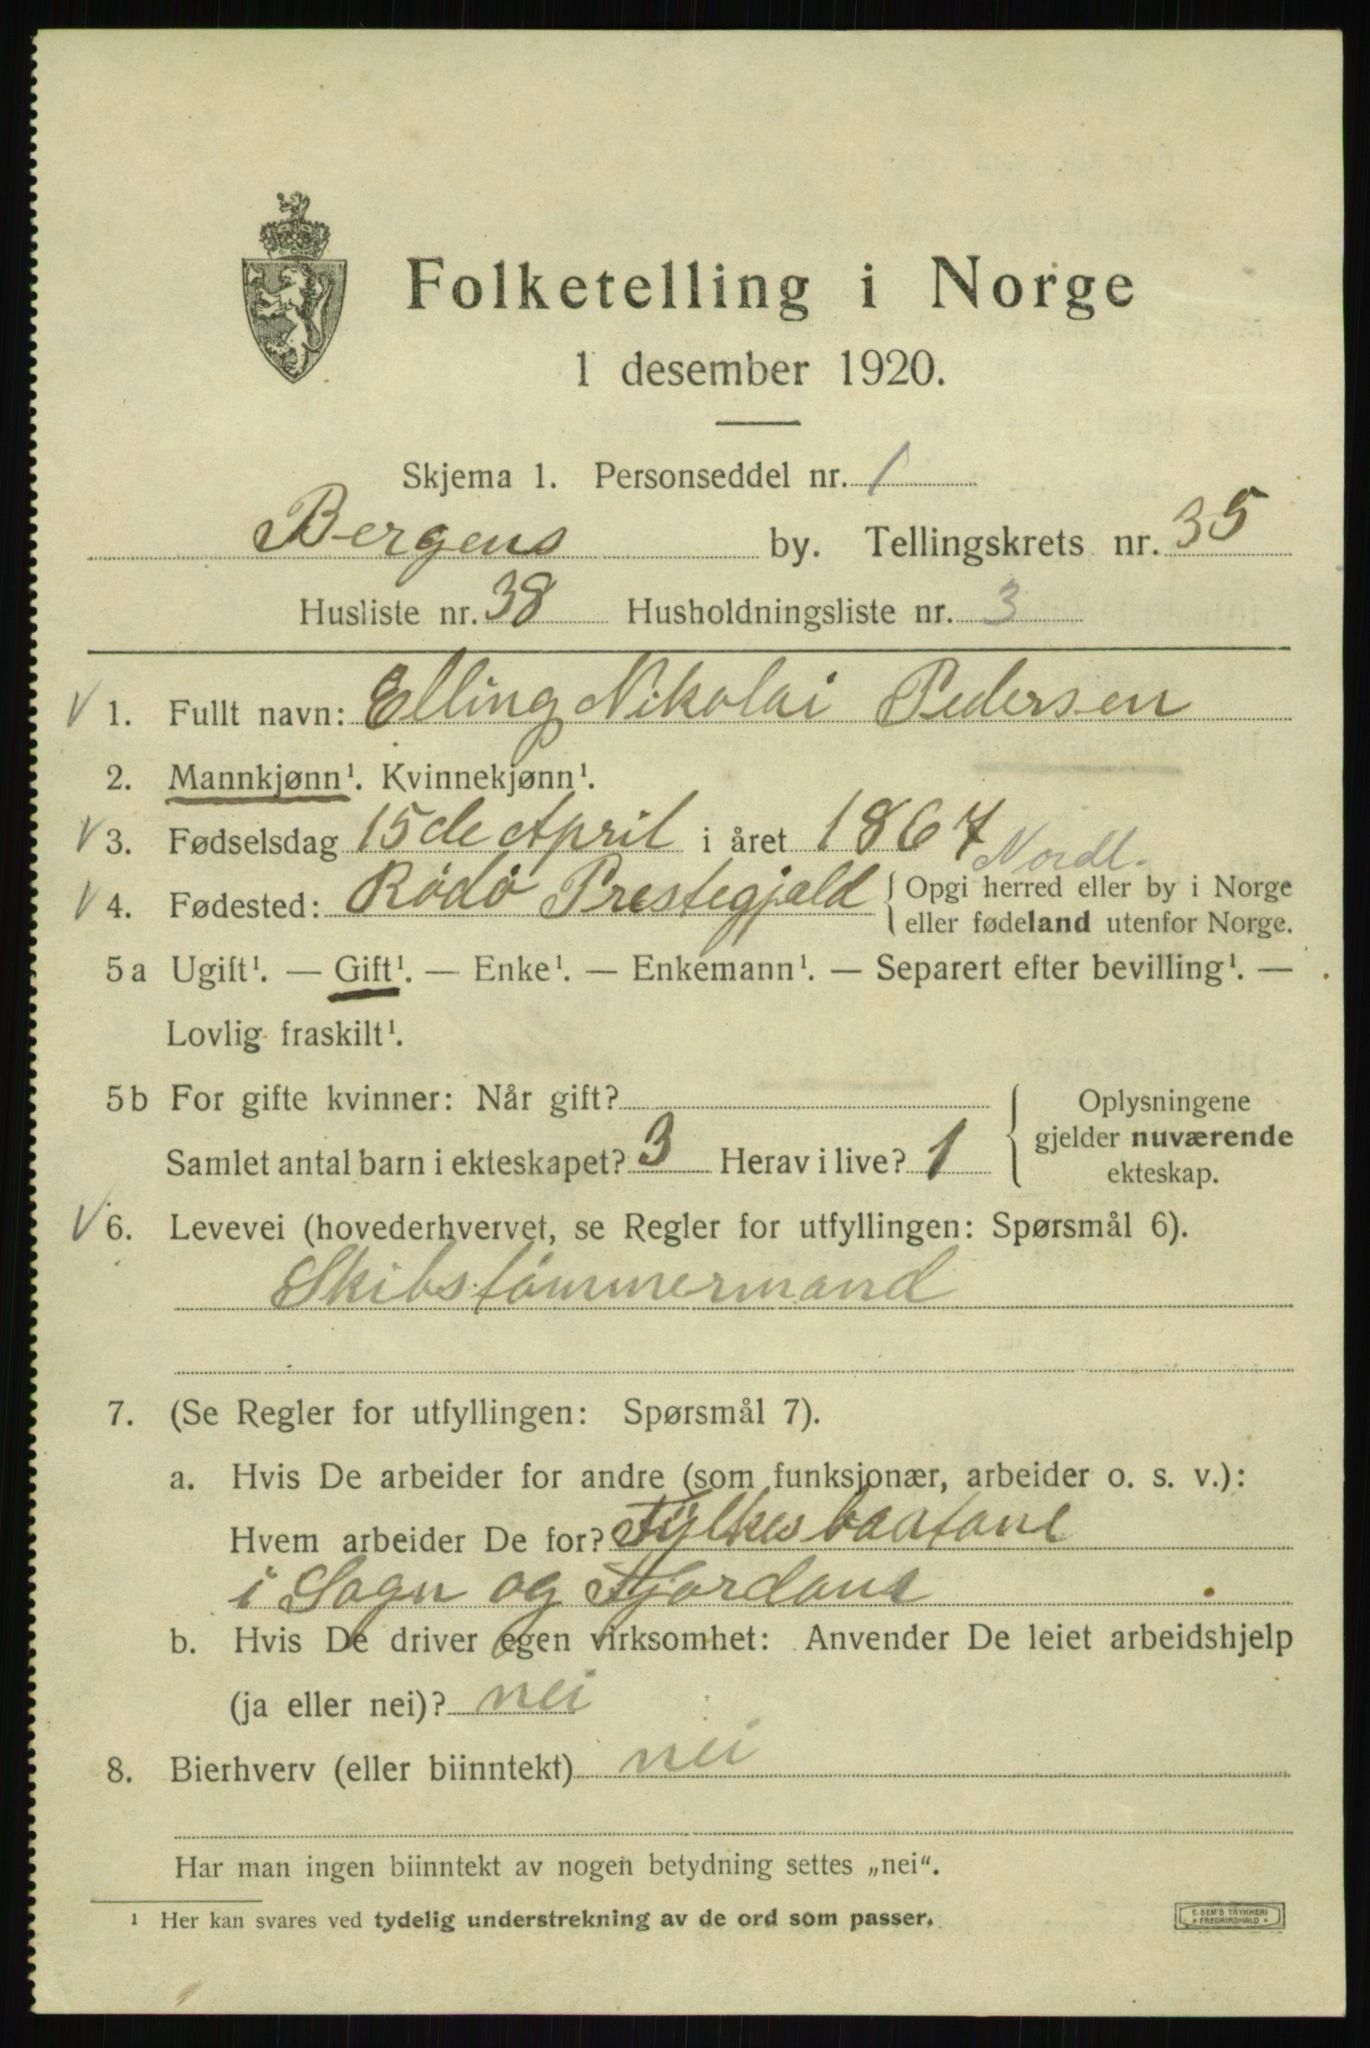 Folketelling i Norge
1 desember 1920.
Skjema 1. Personseddel nr. 1
Bergens by. Tellingskrets nr. 35
Husliste nr. 38 Husholdningsliste nr. 3
V 1. Fullt navn: Elling Nikolai Pedersen
2. Mannkjønn¹. Kvinnekjønn¹.
V 3. Fødselsdag 15de April i året 1867
Nordl.
V 4. Fødested: Rødø Prestegjald { Opgi herred eller by i Norge
eller fødeland utenfor Norge.
5 a Ugift¹. — Gift¹. — Enke¹. — Enkemann¹. — Separert efter bevilling¹. —
Lovlig fraskilt¹.
5 b For gifte kvinner: Når gift?
Samlet antal barn i ekteskapet? 3 Herav i live? 1
Oplysningene
gjelder nuværende
ekteskap.
V 6. Levevei (hovederhvervet, se Regler for utfyllingen: Spørsmål 6).
Skibstømmermand
7. (Se Regler for utfyllingen: Spørsmål 7).
a. Hvis De arbeider for andre (som funksjonær, arbeider o. s. v.):
Hvem arbeider De for? Fylkesbaatane
i Sogn og Fjordane
b. Hvis De driver egen virksomhet: Anvender De leiet arbeidshjelp
(ja eller nei)? nei
8. Bierhverv (eller biinntekt) nei
Har man ingen biinntekt av nogen betydning settes „nei“.
¹ Her kan svares ved tydelig understrekning av de ord som passer.
E. SEM'S TRYKKERI
FREDRIKSHALD